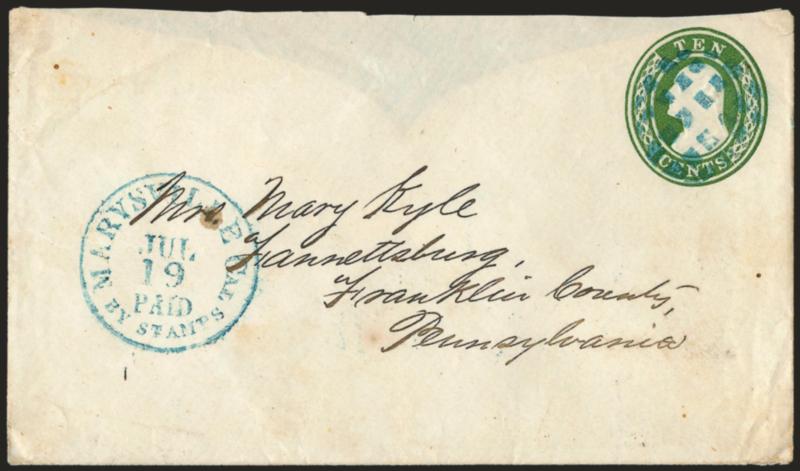 TEN
CENTS
MARYSVILLE CAL.
JUL
19
PAID
BY STAMPS
Mrs. Mary Kyle
Fannettsburg,
Franklin County,
Pennsylvania